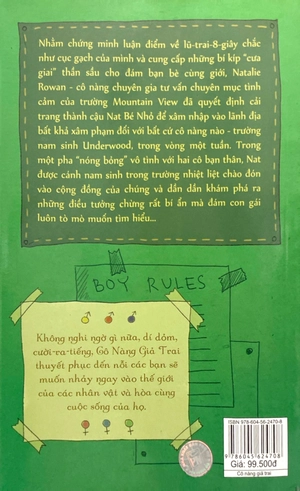 Nhằm chứng minh luận điểm về lũ-trai-8-giây chắc
như cục gạch của mình và cung cấp những bí kíp “cưa
giai” thần sầu cho đám bạn bè cùng giới, Natalie
Rowan - cô nàng chuyên gia tư vấn chuyên mục tình
cảm của trường Mountain View đã quyết định cải
trang thành cậu Nat Bé Nhỏ để xâm nhập vào lãnh địa
bất khả xâm phạm đối với bất cứ cô nàng nào - trường
nam sinh Underwood, trong vòng một tuần. Trong
một pha “nóng bỏng” vô tình với hai cô bạn thân, Nat
được cánh nam sinh trong trường nhiệt liệt chào đón
vào cộng đồng của chúng và dần dần khám phá ra
những điều tưởng chừng rất bí ẩn mà đám con gái
luôn tò mò muốn tìm hiểu...
BOY RULES
Không nghi ngờ gì nữa, dí dỏm,
cười-ra-tiếng, Cô Nàng Giả Trai
thuyết phục đến nỗi các bạn sẽ
muốn nhảy ngay vào thế giới
của các nhân vật và hòa cùng
cuộc sống của họ.
ISBN 978-604-56-2470-8
9 786045 624708
Giá: 99.500đ
Cô nàng giả trai